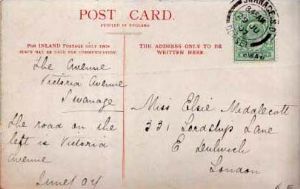 POST CARD.
FOR INLAND POSTAGE ONLY THIS
SPACE MAY BE USED FOR COMMUNICATION
THE ADDRESS ONLY TO BE
WRITTEN HERE.
SWANAGE
The Avenue
Victoria Avenue
Swanage
The road on the
left is Victoria
Avenue
Miss Elsie
331, Lordship Lane
E Dulwich
London